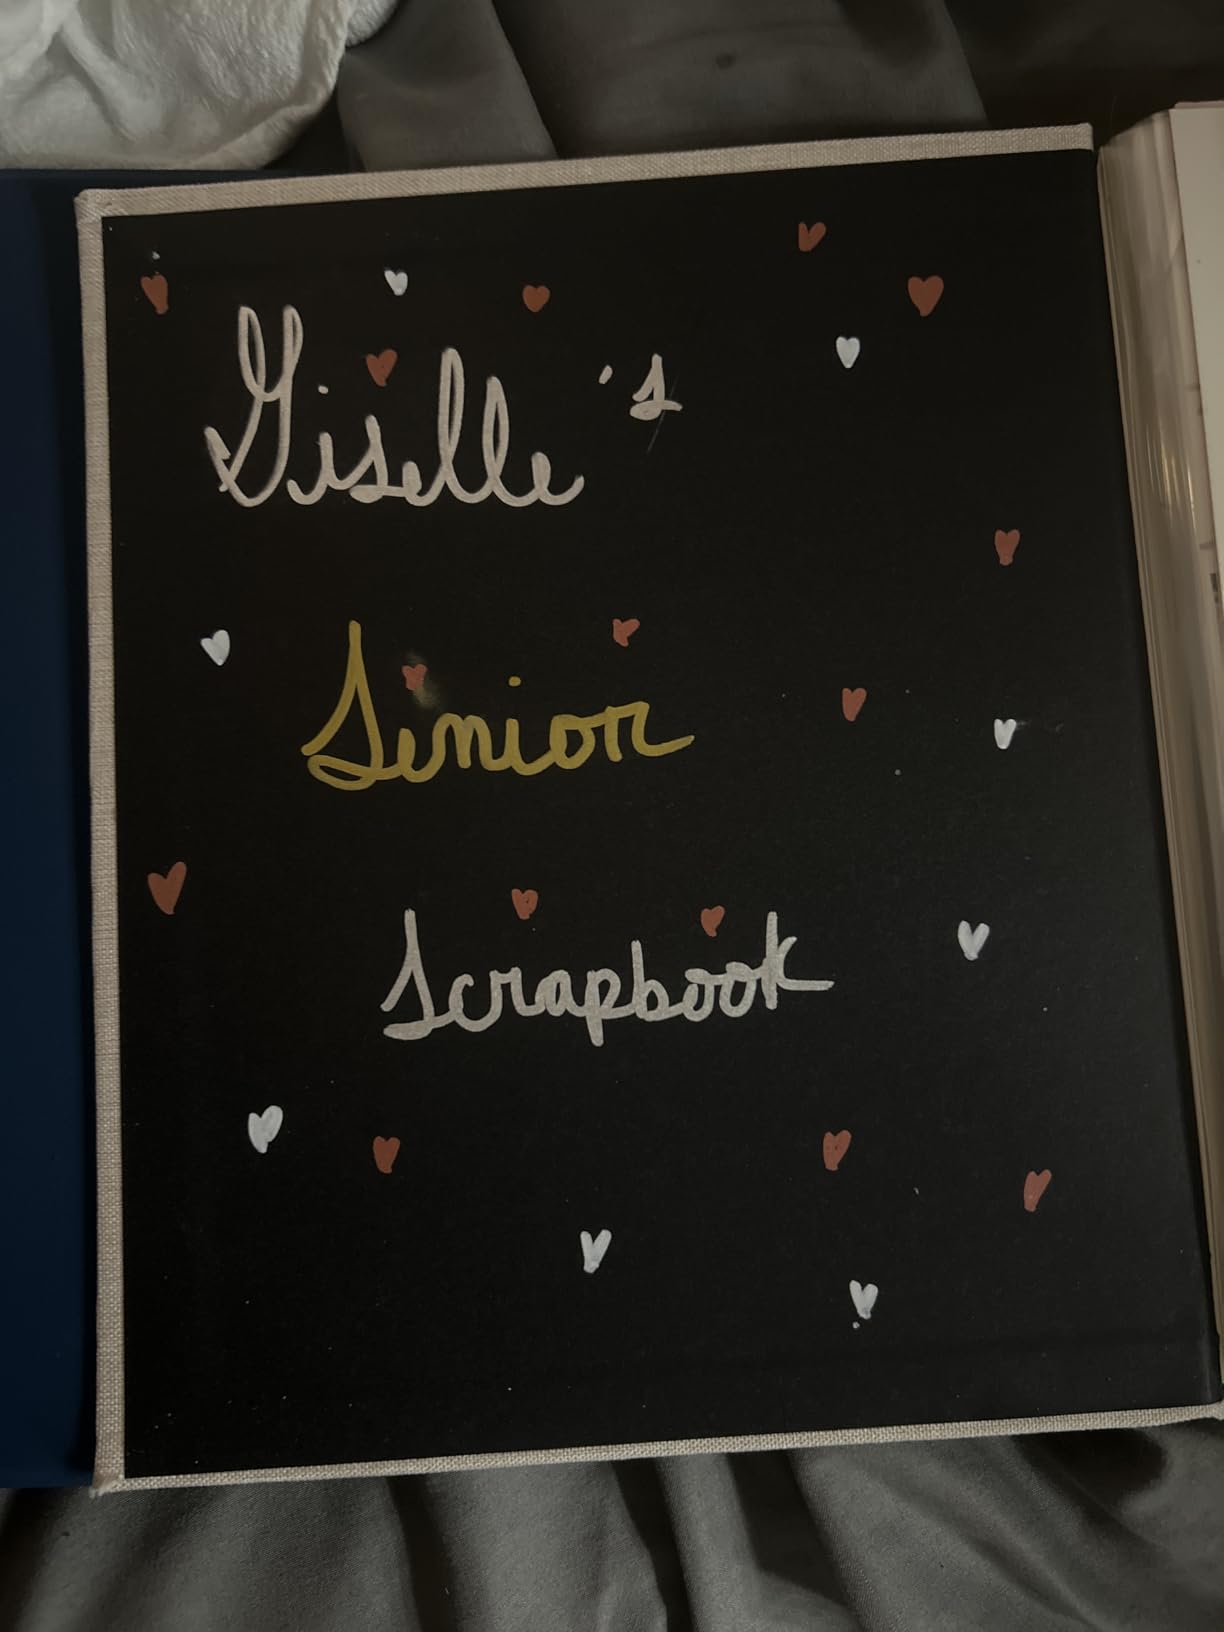 Giselle's
Senior
Scrapbook